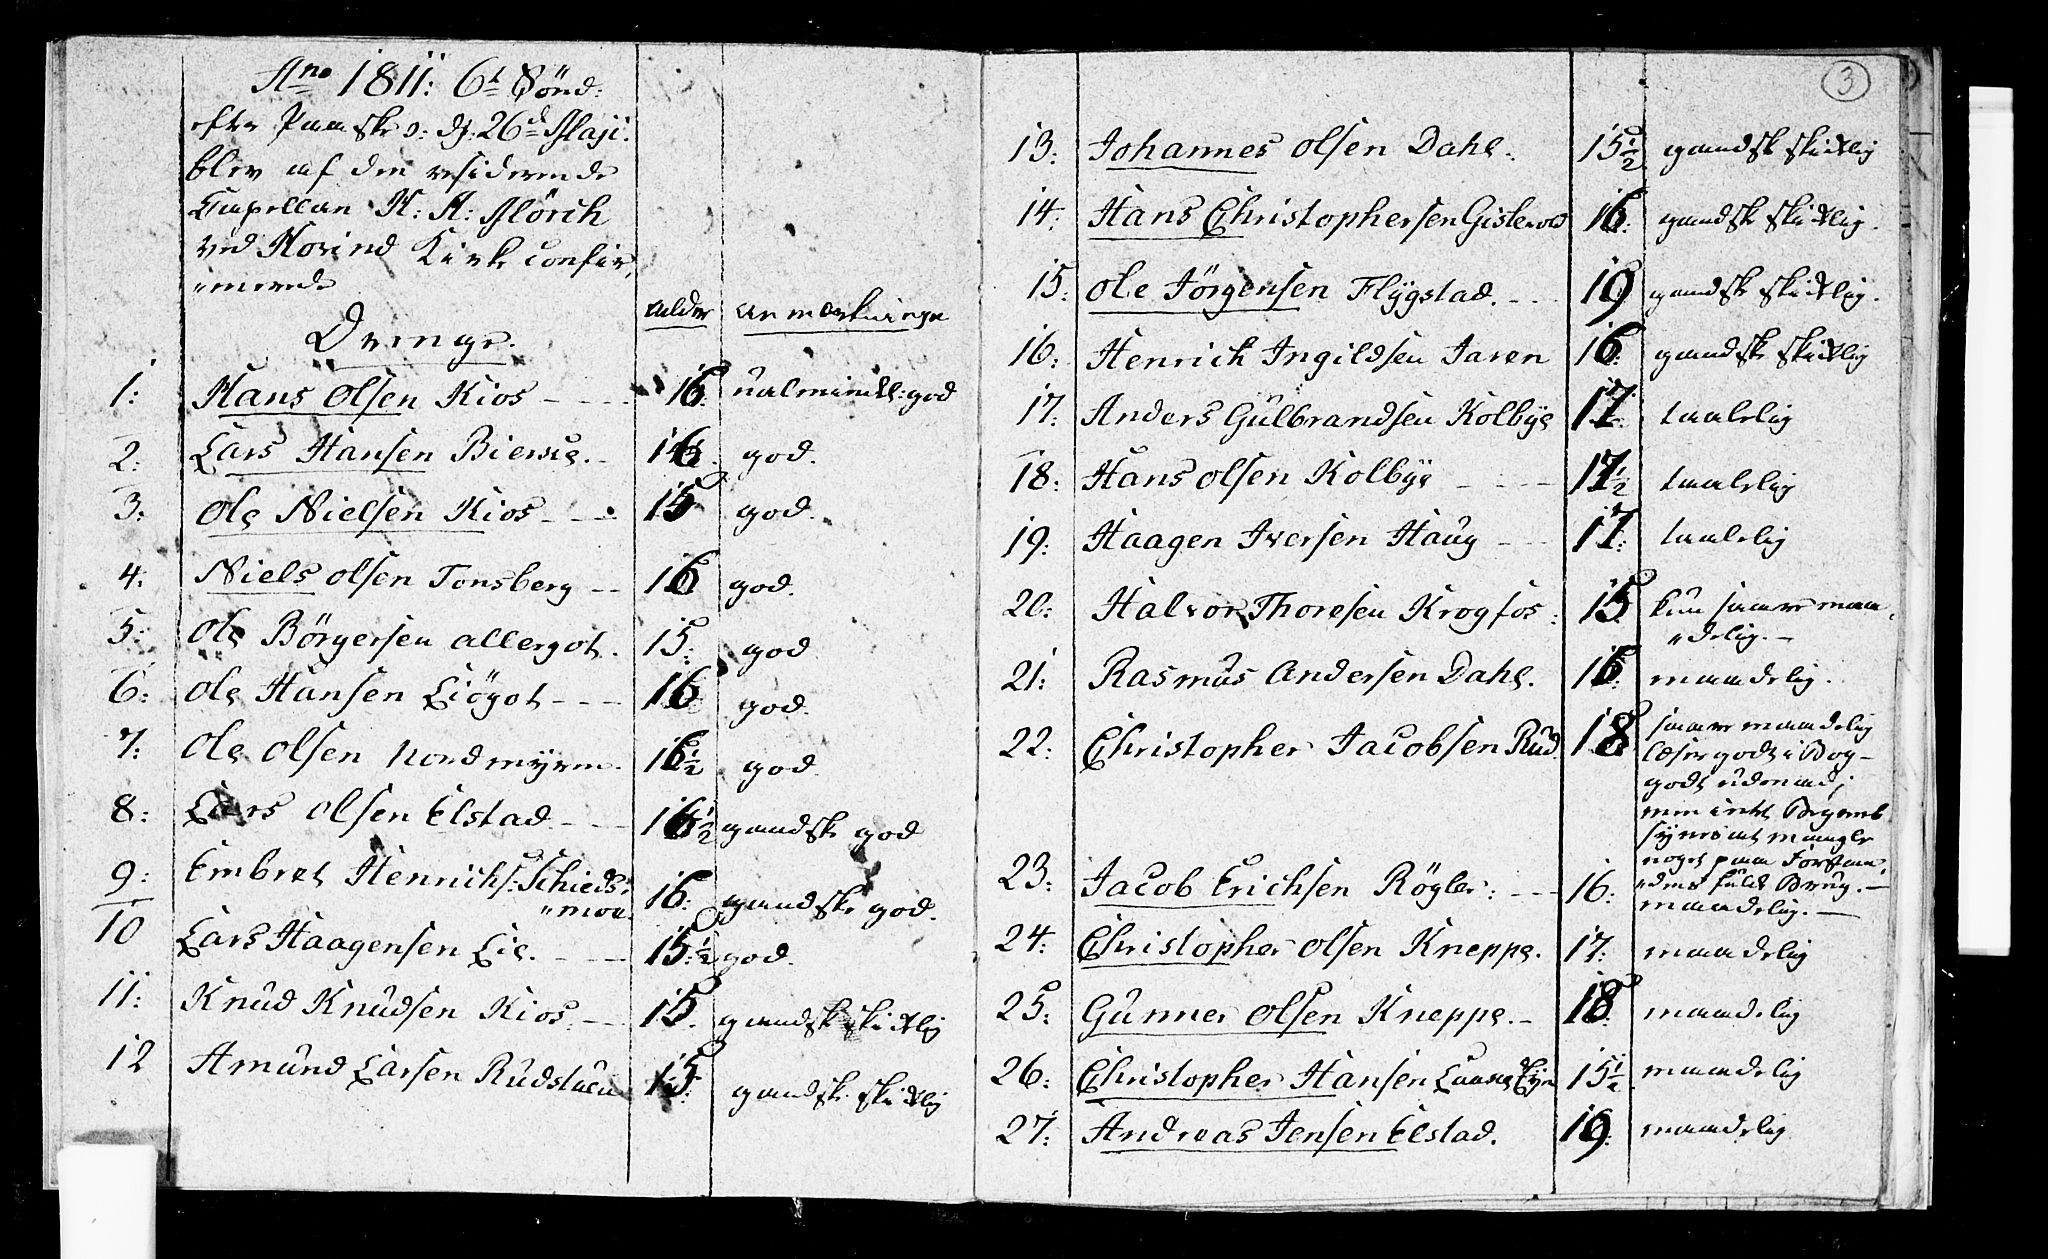 Ano 1811: 6t Sönd:
efter Paaske o: d: 26d Maji.
blev af den residerende
Capellan H: H: Mörch
ved Hovind Kirke confir,
"merede
Drenge.
alder anmærkninger
1: Hans Olsen Kios 16: ualmindel: god
2: Lars Hansen Bierke. 16 god.
3: Ole Nielsen Kios 15 god.
4: Niels Olsen Tonsberg 16 god.
5: Ole Börgersen Allergot. 15: god
6: Ole Hansen Liögot 16 god.
7: Ole Olsen Nordmyren. 16½ god.
8: Lars Olsen Elstad 16½ gandske god
9: Embret Henrichs: Schieds,
"moe. 16: gandske god.
10 Lars Haagensen Lie. 15½ god.
11: Knud Knudsen Kios. 15. gandsk skikelig
12 Amund Larsen Rudstuen 15: gandske skikelig
3
13: Johannes Olsen Dahl. 15½ gandsk skikelig
14: Hans Christophersen Gislevold 16: gandske skikelig.
15: Ole Jörgensen Flygstad. 19 gandske skikelig.
16: Henrich Ingildsen Jaren 16: gandske skikelig
17: Anders Gulbrandsen Kolbye 17: taalelig
18: Hans Olsen Kolbye 17½ taalelig
19: Haagen Iversen Haug 17: taalelig
20: Halvor Thoresen Krogfos: 15 kun saare maa,
"delig.
21: Rasmus Andersen Dahl. 16: maadelig.
22: Christopher Jacobsen Rud. 18 saare maadelig
læser godt i Bog
godt udenad;
men intet Begreb
synes at mangle
noget paa Forstan,
"dens fulde Brug.
23: Jacob Erichsen Rögler: 16: maadelig.
24: Christopher Olsen Kneppe. 17: maadelig
25: Gunner Olsen Kneppe. 18: maadelig
26: Christopher Hansen 15½ maadelig
27: Andreas Jensen Elstad. 19: maadelig